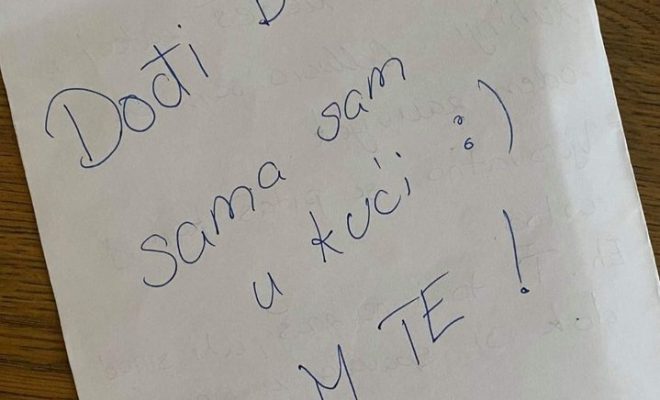 Dođi
sama sam
u kući :)
TE!